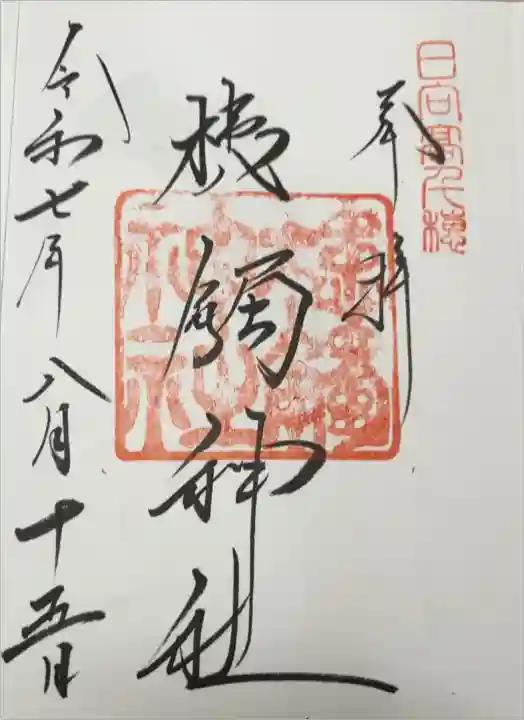 日向高千穂
奉拝
槵觸神社
令和七年八月十五日